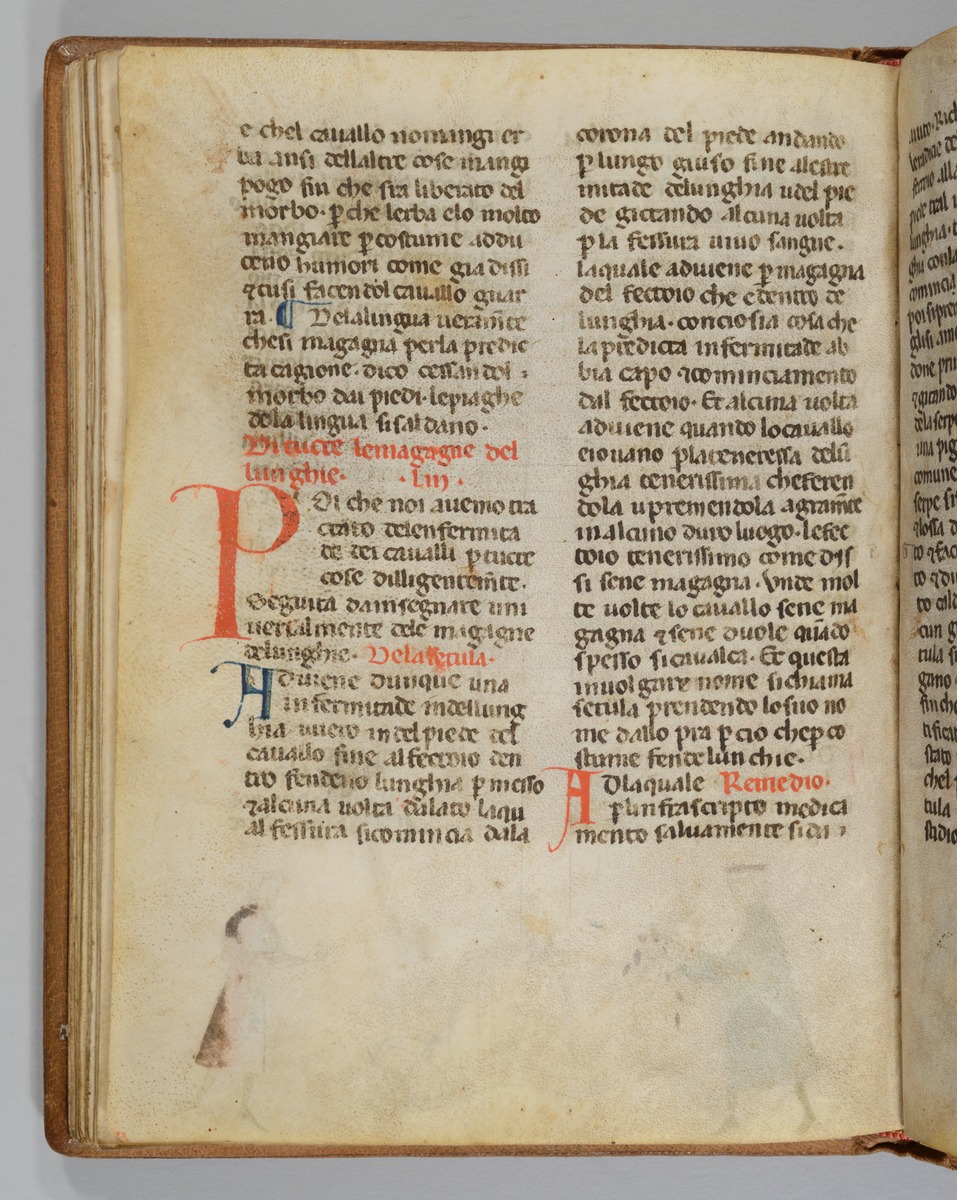 e chel cauallo nomangi er
ba ansi dellaltre cose mangi
pogo fin che sia liberato del
morbo · p̄ che lerba elo molto
mangiare p̄ costume addu
ceno humori come gia dissi
⁊ cusi facendol cauallo guar
ra · ¶ Dela lingua ueram̄te
chesi magagna perla predic
ta cagione · dico cessandol
morbo dai piedi · lepiaghe
dela lingua sisaldano ·
Di tucte lemagagne del
lunghie · · Liij ·
POi che noi auemo tra
ctato delenfermita
de dei caualli p̄ tucte
cose dilligentem̄te ·
Seguita dainsegnare uni
uersalmente dele magagne
delunghie · Dela setula ·
Aduiene dunque una
infermitade indellung
hia uuero indel piede del
cauallo sine al fectoio den
tro fendeno lunghia p̄ messo
⁊ alcuna uolta dalato laqu
al fessura sicomincia dala
corona del piede andando
p̄ lungo giuso sine alestre
mitade delunghia udel pie
de gictando alcuna uolta
p̄ la fessura uiuo sangue ·
laquale aduiene p̄ magagna
del fectoio che edentro de
lunghia · conciosia cosa che
la predicta infermitade ab
bia capo ⁊ cominciamento
dal fectoio · Et alcuna uolta
aduiene quando locauallo
eiouano p̄ lateneressa delū
ghia tenerissima cheferen
dola upremendola agram̄te
in alcuno duro luogo · lefec
toio tenerissimo come dis
si sene magagna · Unde mol
te uolte lo cauallo sene ma
gagna ⁊ sene duole quādo
spesso sicaualca · Et questa
inuolgare nome sichiama
setula prendendo losuo no
me dallo pra p̄ cio chep̄ co
stume fende lunchie ·
ADlaquale Remedio ·
p̄ linfrascripto medica
mento saluamente si da